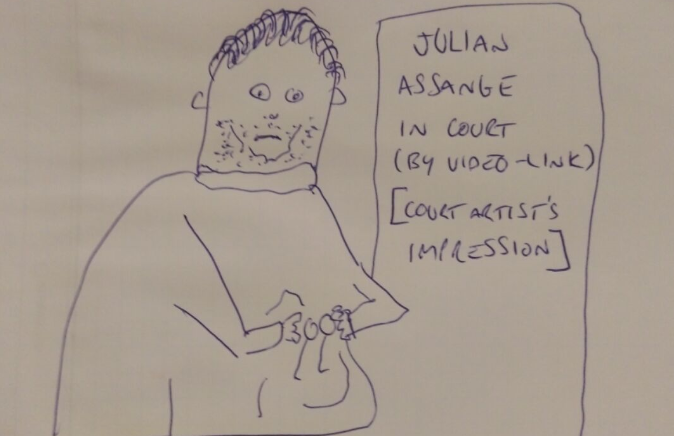 JULIAN
ASSANGE
IN COURT
(BY VIDEO-LINK)
[COURT ARTIST'S
IMPRESSION]